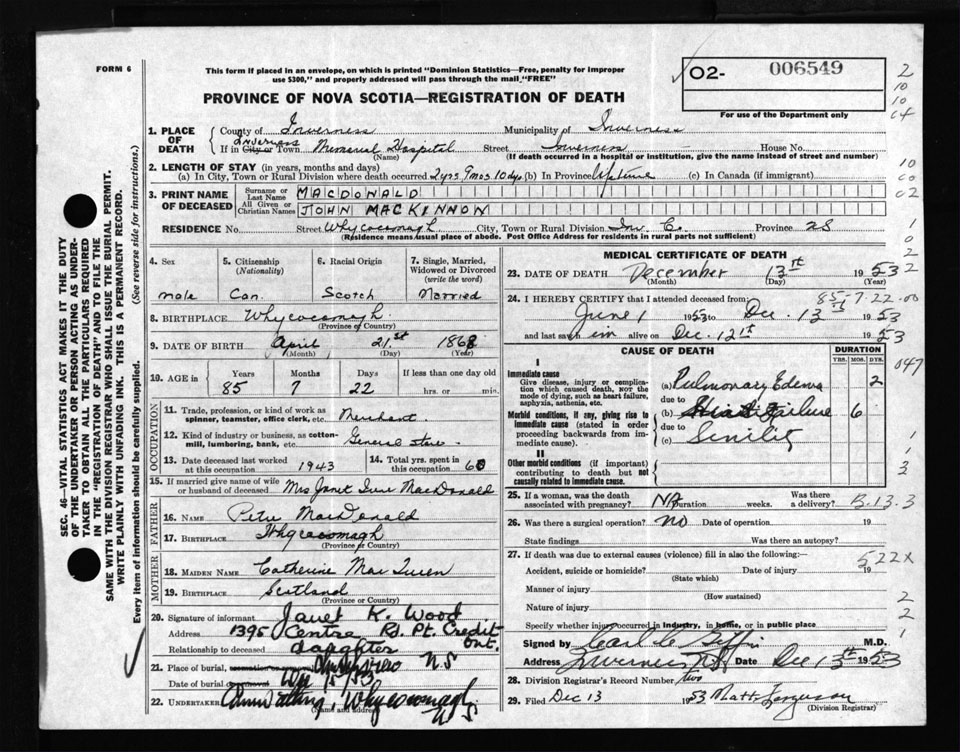 FORM 6
This form if placed in an envelope, on which is printed "Dominion Statistics—Free, penalty for improper
use $300," and properly addressed will pass through the mail "FREE"
PROVINCE OF NOVA SCOTIA—REGISTRATION OF DEATH
O2- 006549
For use of the Department only
2
10
10
04
1. PLACE OF DEATH { County of Inverness Municipality of Inverness
If in City or Town Inverness Memorial Hospital Street Inverness House No.
(Name) (If death occurred in a hospital or institution, give the name instead of street and number)
2. LENGTH OF STAY (in years, months and days)
(a) In City, Town or Rural Division where death occurred 2 yrs 9 mos 10 dys (b) In Province Lifetime (c) In Canada (if immigrant)
3. PRINT NAME OF DECEASED { Surname or Last Name MACDONALD
All Given or Christian Names JOHN MACKINNON
RESIDENCE No. Street Whycocomagh City, Town or Rural Division Inv. C. Province NS
(Residence means usual place of abode. Post Office Address for residents in rural parts not sufficient)
4. Sex male
5. Citizenship (Nationality) Can.
6. Racial Origin Scotch
7. Single, Married, Widowed or Divorced (write the word) Married
8. BIRTHPLACE Whycocomagh
(Province or Country)
9. DATE OF BIRTH April 21st 1868
(Month) (Day) (Year)
10. AGE in { Years Months Days If less than one day old
85 7 22 hrs. or min.
OCCUPATION
11. Trade, profession, or kind of work as spinner, teamster, office clerk, etc. Merchant
12. Kind of industry or business, as cotton-mill, lumbering, bank, etc. General store
13. Date deceased last worked at this occupation 1943
14. Total yrs. spent in this occupation 60
15. If married give name of wife or husband of deceased Mrs Janet MacDonald
FATHER
16. NAME Peter MacDonald
17. BIRTHPLACE Whycocomagh
(Province or Country)
MOTHER
18. MAIDEN NAME Catherine Mac
19. BIRTHPLACE Scotland
(Province or Country)
20. Signature of informant Janet K. Wood
Address 1395 Centre Rd. Pt. Credit Ont.
Relationship to deceased daughter
21. Place of burial, cremation or removal N S
Date of burial or removal Dec 15/53
22. UNDERTAKER Whycocomagh N S
(Name and address)
MEDICAL CERTIFICATE OF DEATH
23. DATE OF DEATH December 13th 1953
(Month) (Day) (Year)
85-7-22-00
24. I HEREBY CERTIFY that I attended deceased from:
June 1 1953 to Dec. 13th 1953
and last saw him alive on Dec. 12th 1953
CAUSE OF DEATH DURATION
YRS. MOS. DYS.
047
I
Immediate cause
Give disease, injury or complication which caused death, NOT the mode of dying, such as heart failure, asphyxia, asthenia, etc.
(a) Pulmonary Edema 2
due to
Morbid conditions, if any, giving rise to immediate cause (stated in order proceeding backwards from immediate cause).
(b) failure 6
due to
(c) Senility
II
Other morbid conditions (if important) contributing to death but not causally related to immediate cause.
25. If a woman, was the death associated with pregnancy? NA Duration weeks. Was there a delivery? B.13.3
26. Was there a surgical operation? No Date of operation 19
State findings Was there an autopsy?
27. If death was due to external causes (violence) fill in also the following:—
522X
Accident, suicide or homicide? Date of injury 19
(State which)
Manner of injury
(How sustained)
Nature of injury
Specify whether injury occurred in industry, in home, or in public place
Signed by M.D.
Address Inverness N.S. Date Dec 13th 1953
28. Division Registrar's Record Number two
29. Filed Dec 13 1953 Matt Ferguson
(Division Registrar)
SEC. 46—VITAL STATISTICS ACT MAKES IT THE DUTY
OF THE UNDERTAKER OR PERSON ACTING AS UNDERTAKER
TO OBTAIN ALL THE PARTICULARS REQUIRED
IN THE "REGISTRATION OF DEATH" AND TO FILE THE
SAME WITH THE DIVISION REGISTRAR WHO SHALL ISSUE THE BURIAL PERMIT.
WRITE PLAINLY WITH UNFADING INK. THIS IS A PERMANENT RECORD.
Every item of information should be carefully supplied. (See reverse side for instructions.)